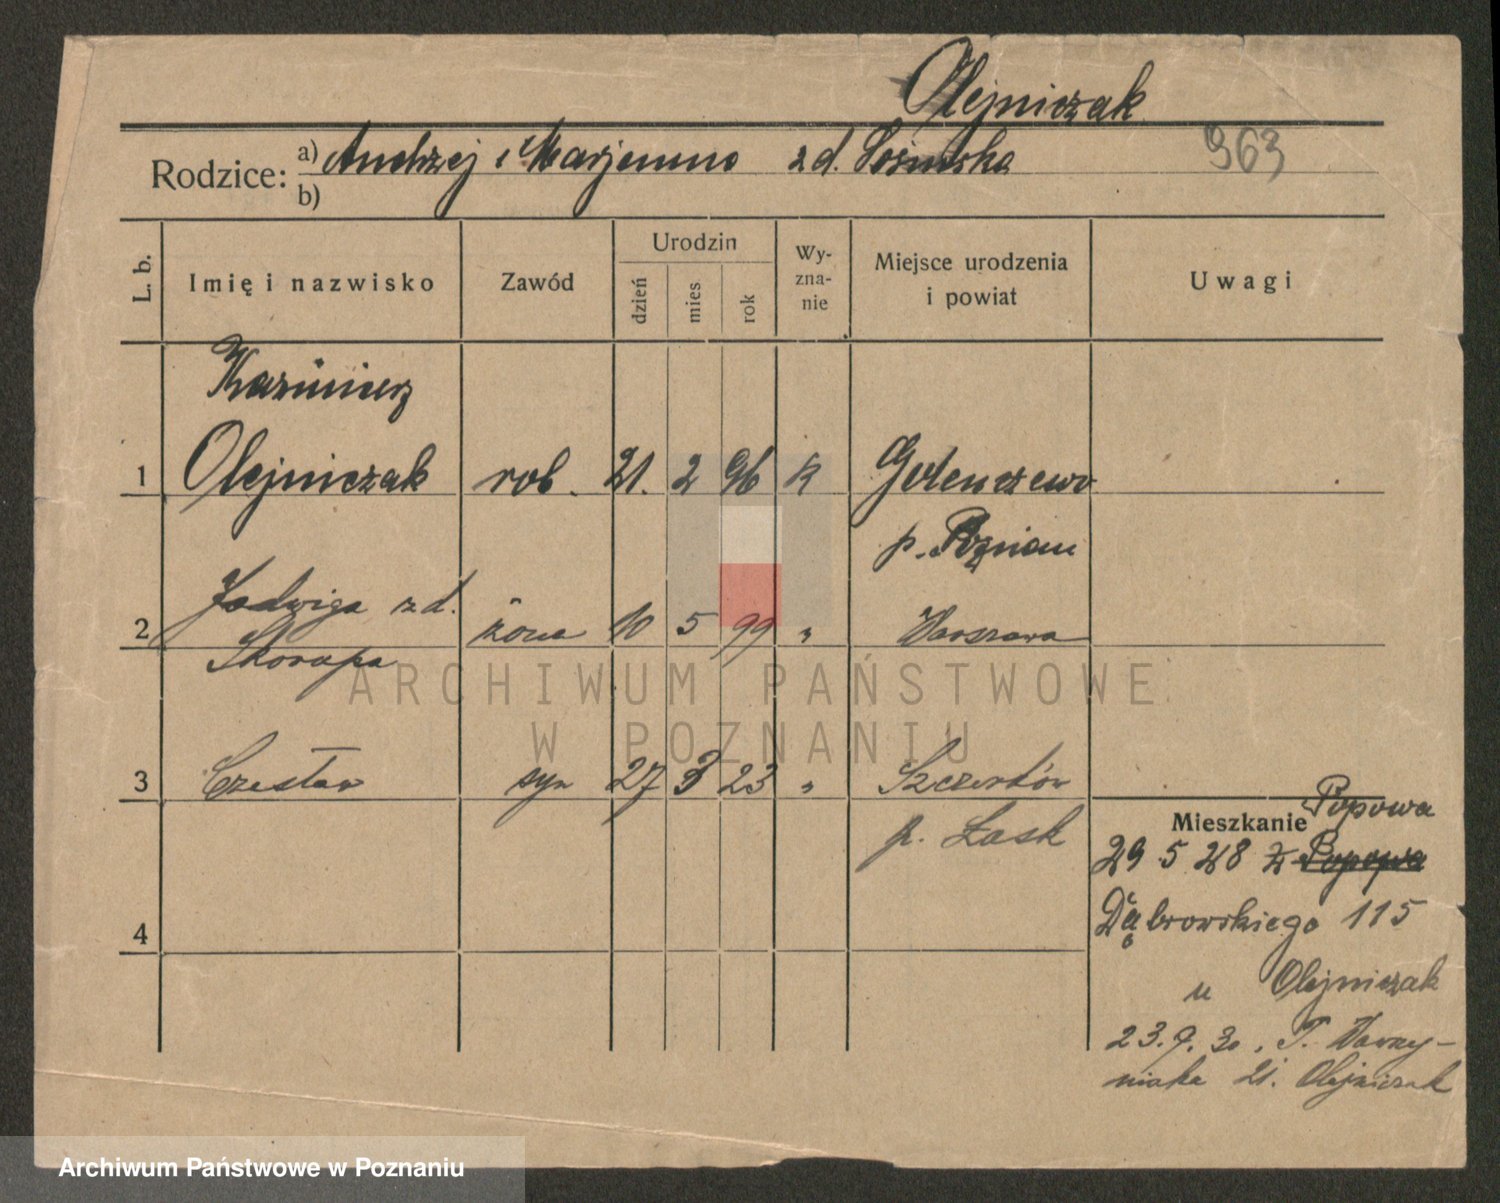 Olejniczak
Rodzice: a) Andrzej i Marjanna z d. Sosińska 963
b)
L. b. Imię i nazwisko Zawód Urodzin dzień mies rok Wy-zna-nie Miejsce urodzenia i powiat Uwagi
Kazimierz
1 Olejniczak rob. 21. 2 96 k Golenczewo
p. Poznian
Jadwiga z d.
2 Skorupa żona 10 5 99 " Warszawa
3 Czesław syn 27 3 23 " Szczerków
p. Łask
4
Mieszkanie Popowa
29 5 28 z Popowa
Dąbrowskiego 115
u Olejniczak
23.9.30. T. Wawrzy-
niaka 21. Olejniczak
ARCHIWUM PAŃSTWOWE
W POZNANIU
Archiwum Państwowe w Poznaniu